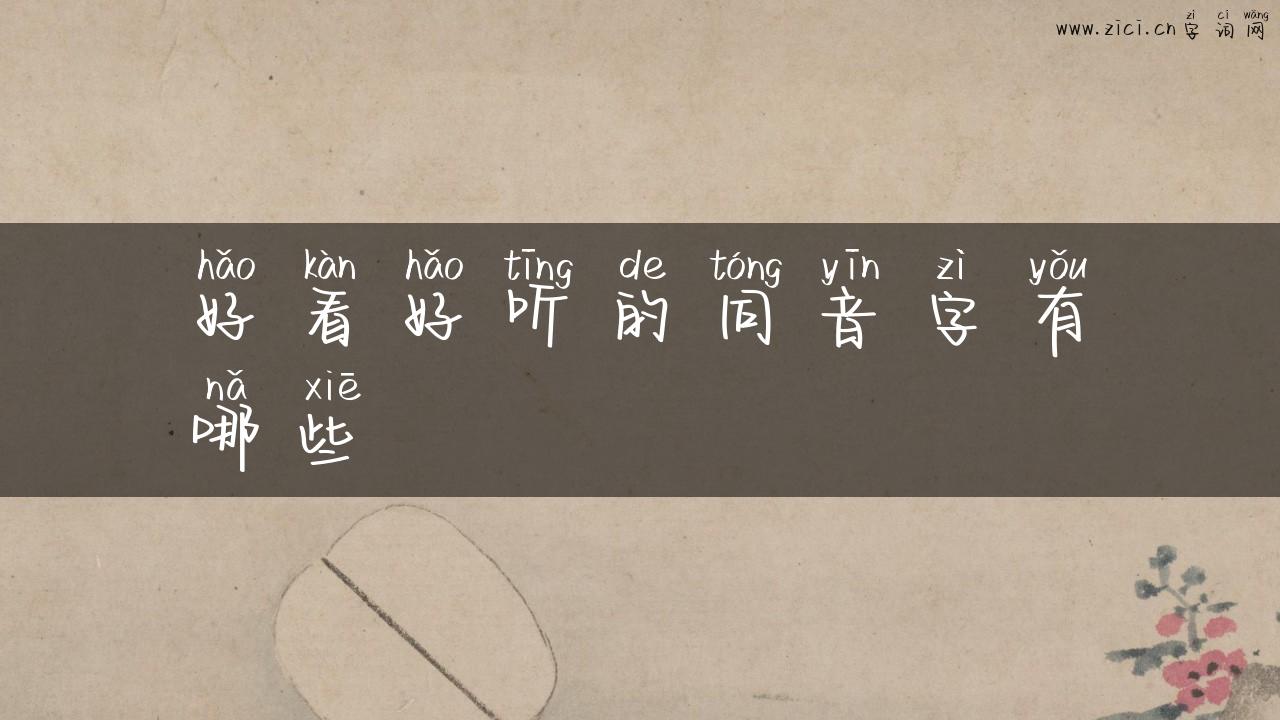 zì cí wǎng
www.zici.cn 字词网
hǎo kàn hǎo tīng de tóng yīn zì yǒu
好看好听的同音字有
nǎ xiē
哪些